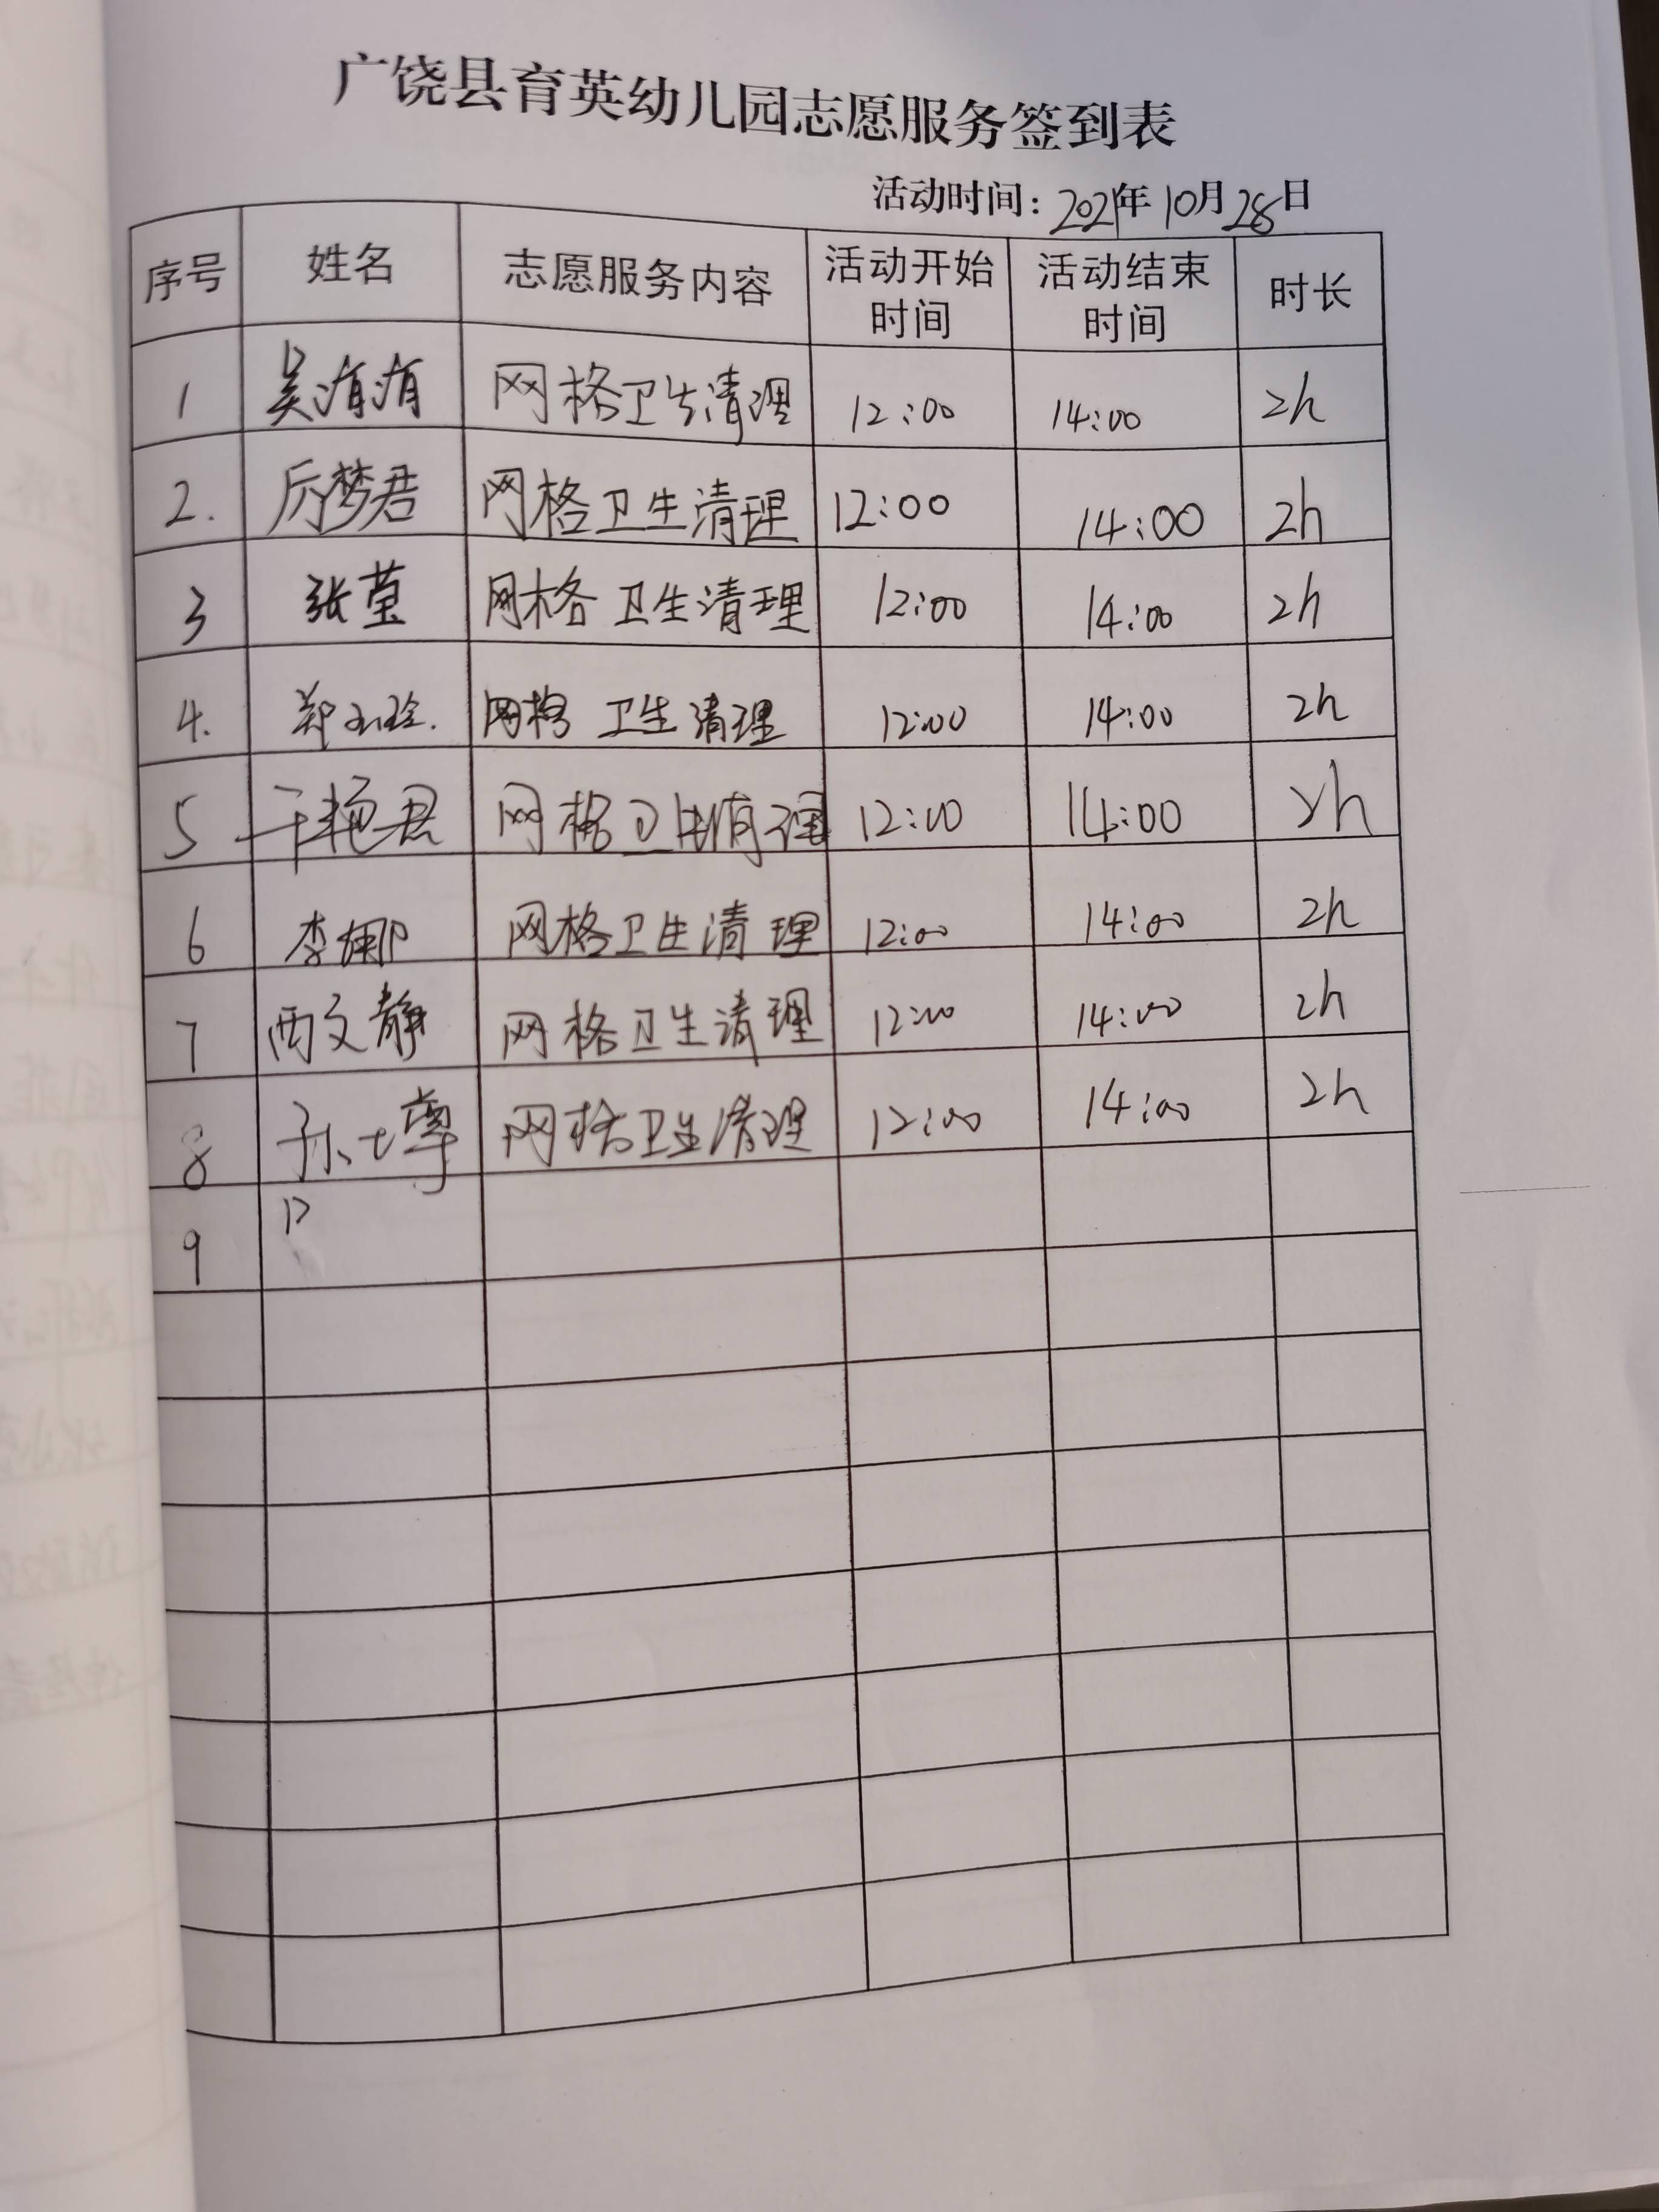 广饶县育英幼儿园志愿服务签到表
活动时间：2021年10月28日
序号 姓名 志愿服务内容 活动开始时间 活动结束时间 时长
1 吴洧洧 网格卫生清理 12:00 14:00 2h
2. 厉梦君 网格卫生清理 12:00 14:00 2h
3 张莹 网格卫生清理 12:00 14:00 2h
4. 郑玉玲. 网格卫生清理 12:00 14:00 2h
5 王艳君 网格卫生清理 12:00 14:00 2h
6 李娜 网格卫生清理 12:00 14:00 2h
7 西文静 网格卫生清理 12:00 14:00 2h
8 孙 网格卫生清理 12:00 14:00 2h
9